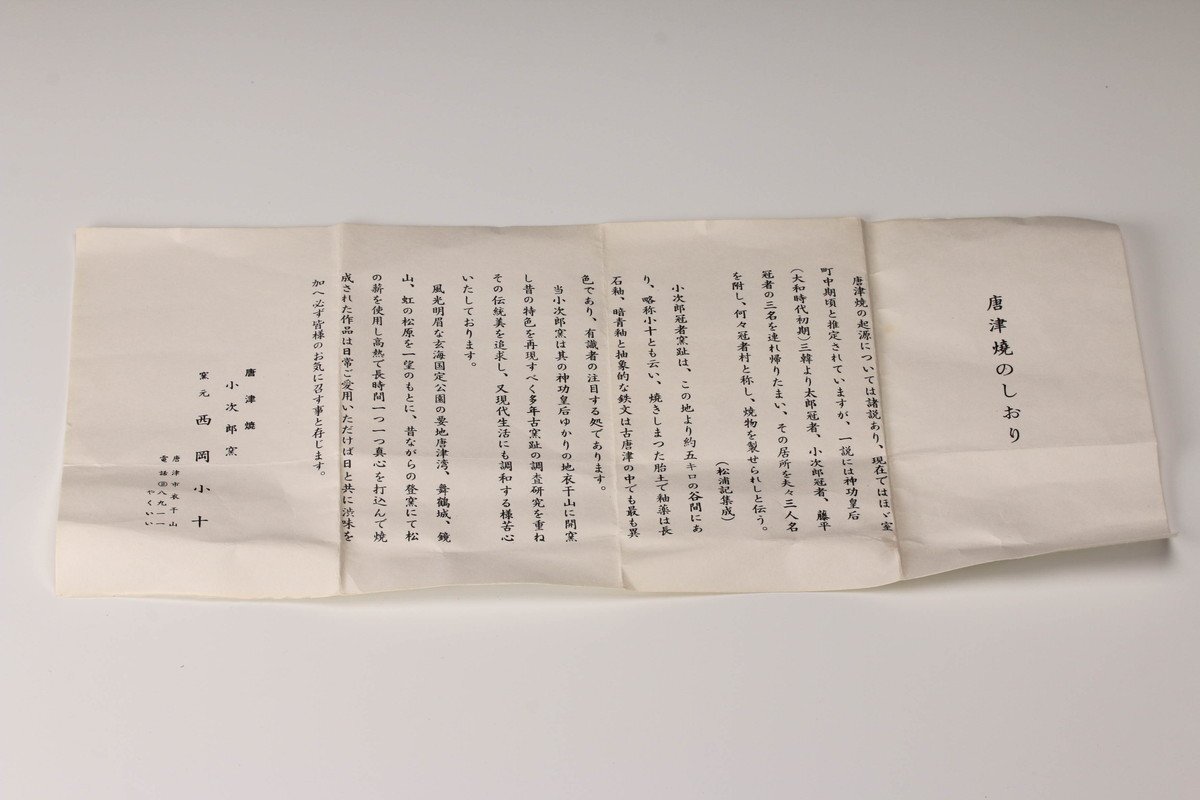 唐津燒のしおり
唐津焼の起源については諸説あり、現在ではほゞ室
町中期頃と推定されていますが、一説には神功皇后
（大和時代初期）三韓より太郎冠者、小次郎冠者、藤平
冠者の三名を連れ帰りたまい、その居所を夫々三人名
を附し、何々冠者村と称し、焼物を製せられしと伝う。
（松浦記集成）
小次郎冠者窯趾は、この地より約五キロの谷間にあ
り、略称小十とも云い、焼きしまつた胎土で釉薬は長
石釉、暗青釉と抽象的な鉄文は古唐津の中でも最も異
色であり、有識者の注目する処であります。
当小次郎窯は其の神功皇后ゆかりの地衣干山に開窯
し昔の特色を再現すべく多年古窯趾の調査研究を重ね
その伝統美を追求し、又現代生活にも調和する様苦心
いたしております。
風光明眉な玄海国定公園の要地唐津湾、舞鶴城、鏡
山、虹の松原を一望のもとに、昔ながらの登窯にて松
の薪を使用し高熱で長時間一つ一つ真心を打込んで焼
成された作品は日常ご愛用いただけば日と共に渋味を
加へ必ず皆様のお気に召す事と存じます。
唐津燒
小次郎窯
窯元 西岡小十
唐津市衣干山
電話②八九一一
やくいい